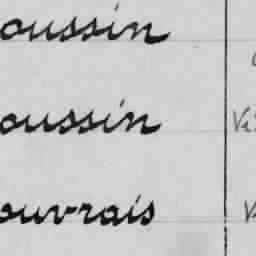 oussin
oussin Vi
ouvrais V